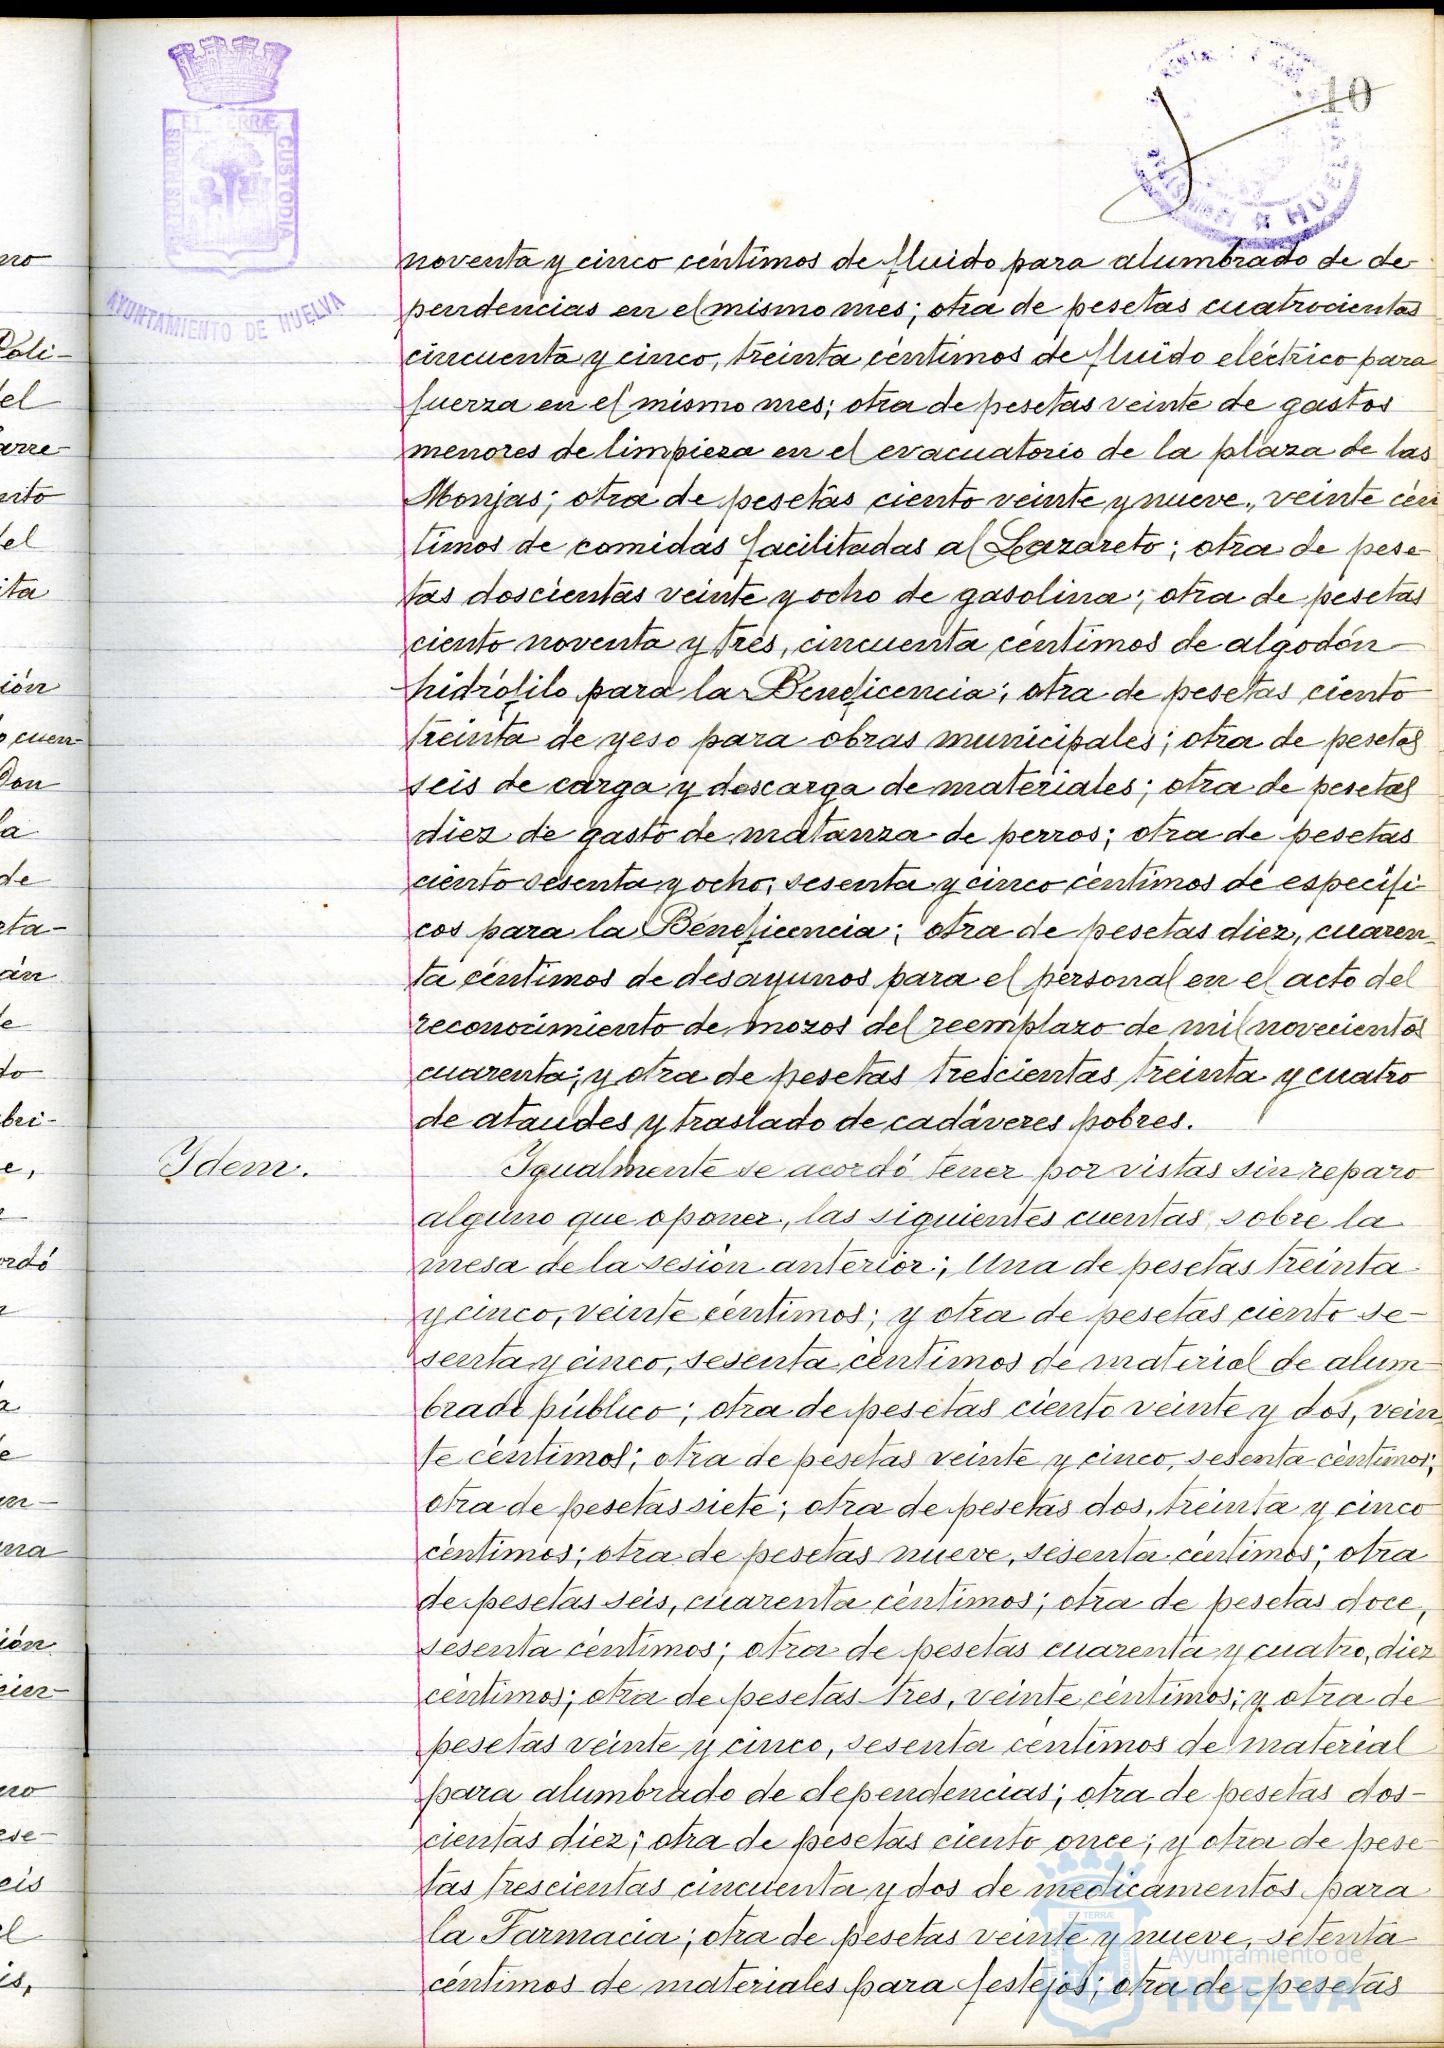 10
EL TERRÆ
PORTUS MARIS
CUSTODIA
AYUNTAMIENTO DE HUELVA
noventa y cinco céntimos de fluido para alumbrado de de
pendencias en el mismo mes; otra de pesetas cuatrocientas
cincuenta y cinco, treinta céntimos de fluido eléctrico para
fuerza en el mismo mes; otra de pesetas veinte de gastos
menores de limpieza en el evacuatorio de la plaza de las
Monjas; otra de pesetas ciento veinte y nueve, veinte cén
timos de comidas facilitadas al Lazareto; otra de pese-
tas doscientas veinte y ocho de gasolina; otra de pesetas
ciento noventa y tres, cincuenta céntimos de algodón
hidrófilo para la Beneficencia; otra de pesetas ciento
treinta de yeso para obras municipales; otra de pesetas
seis de carga y descarga de materiales; otra de pesetas
diez de gasto de matanza de perros; otra de pesetas
ciento sesenta y ocho, sesenta y cinco céntimos de específi-
cos para la Beneficencia; otra de pesetas diez, cuaren-
ta céntimos de desayunos para el personal en el acto del
reconocimiento de mozos del reemplazo de mil novecientos
cuarenta; y otra de pesetas trescientas treinta y cuatro
de ataudes y traslado de cadáveres pobres.
Ydem.
Igualmente se acordó tener por vistas sin reparo
alguno que oponer, las siguientes cuentas sobre la
mesa de la sesión anterior; Una de pesetas treinta
y cinco, veinte céntimos; y otra de pesetas ciento se-
senta y cinco, sesenta céntimos de material de alum-
brado público; otra de pesetas ciento veinte y dos, vein
te céntimos; otra de pesetas veinte y cinco, sesenta céntimos;
otra de pesetas siete; otra de pesetas dos, treinta y cinco
céntimos; otra de pesetas nueve, sesenta céntimos; otra
de pesetas seis, cuarenta céntimos; otra de pesetas doce,
sesenta céntimos; otra de pesetas cuarenta y cuatro, diez
céntimos; otra de pesetas tres, veinte céntimos; y otra de
pesetas veinte y cinco, sesenta céntimos de material
para alumbrado de dependencias; otra de pesetas dos-
cientas diez; otra de pesetas ciento once; y otra de pese-
tas trescientas cincuenta y dos de medicamentos para
la Farmacia; otra de pesetas veinte y nueve, setenta
céntimos de materiales para festejos; otra de pesetas
Ayuntamiento de
HUELVA